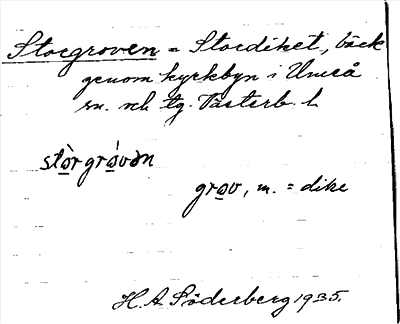 Storgroven = Stordiket, bäck
genom kyrkbyn i Umeå
sn. och tg. Västerb. l.
stòrgró̀vən
grov, m. = dike
H. A. Söderberg 1935.